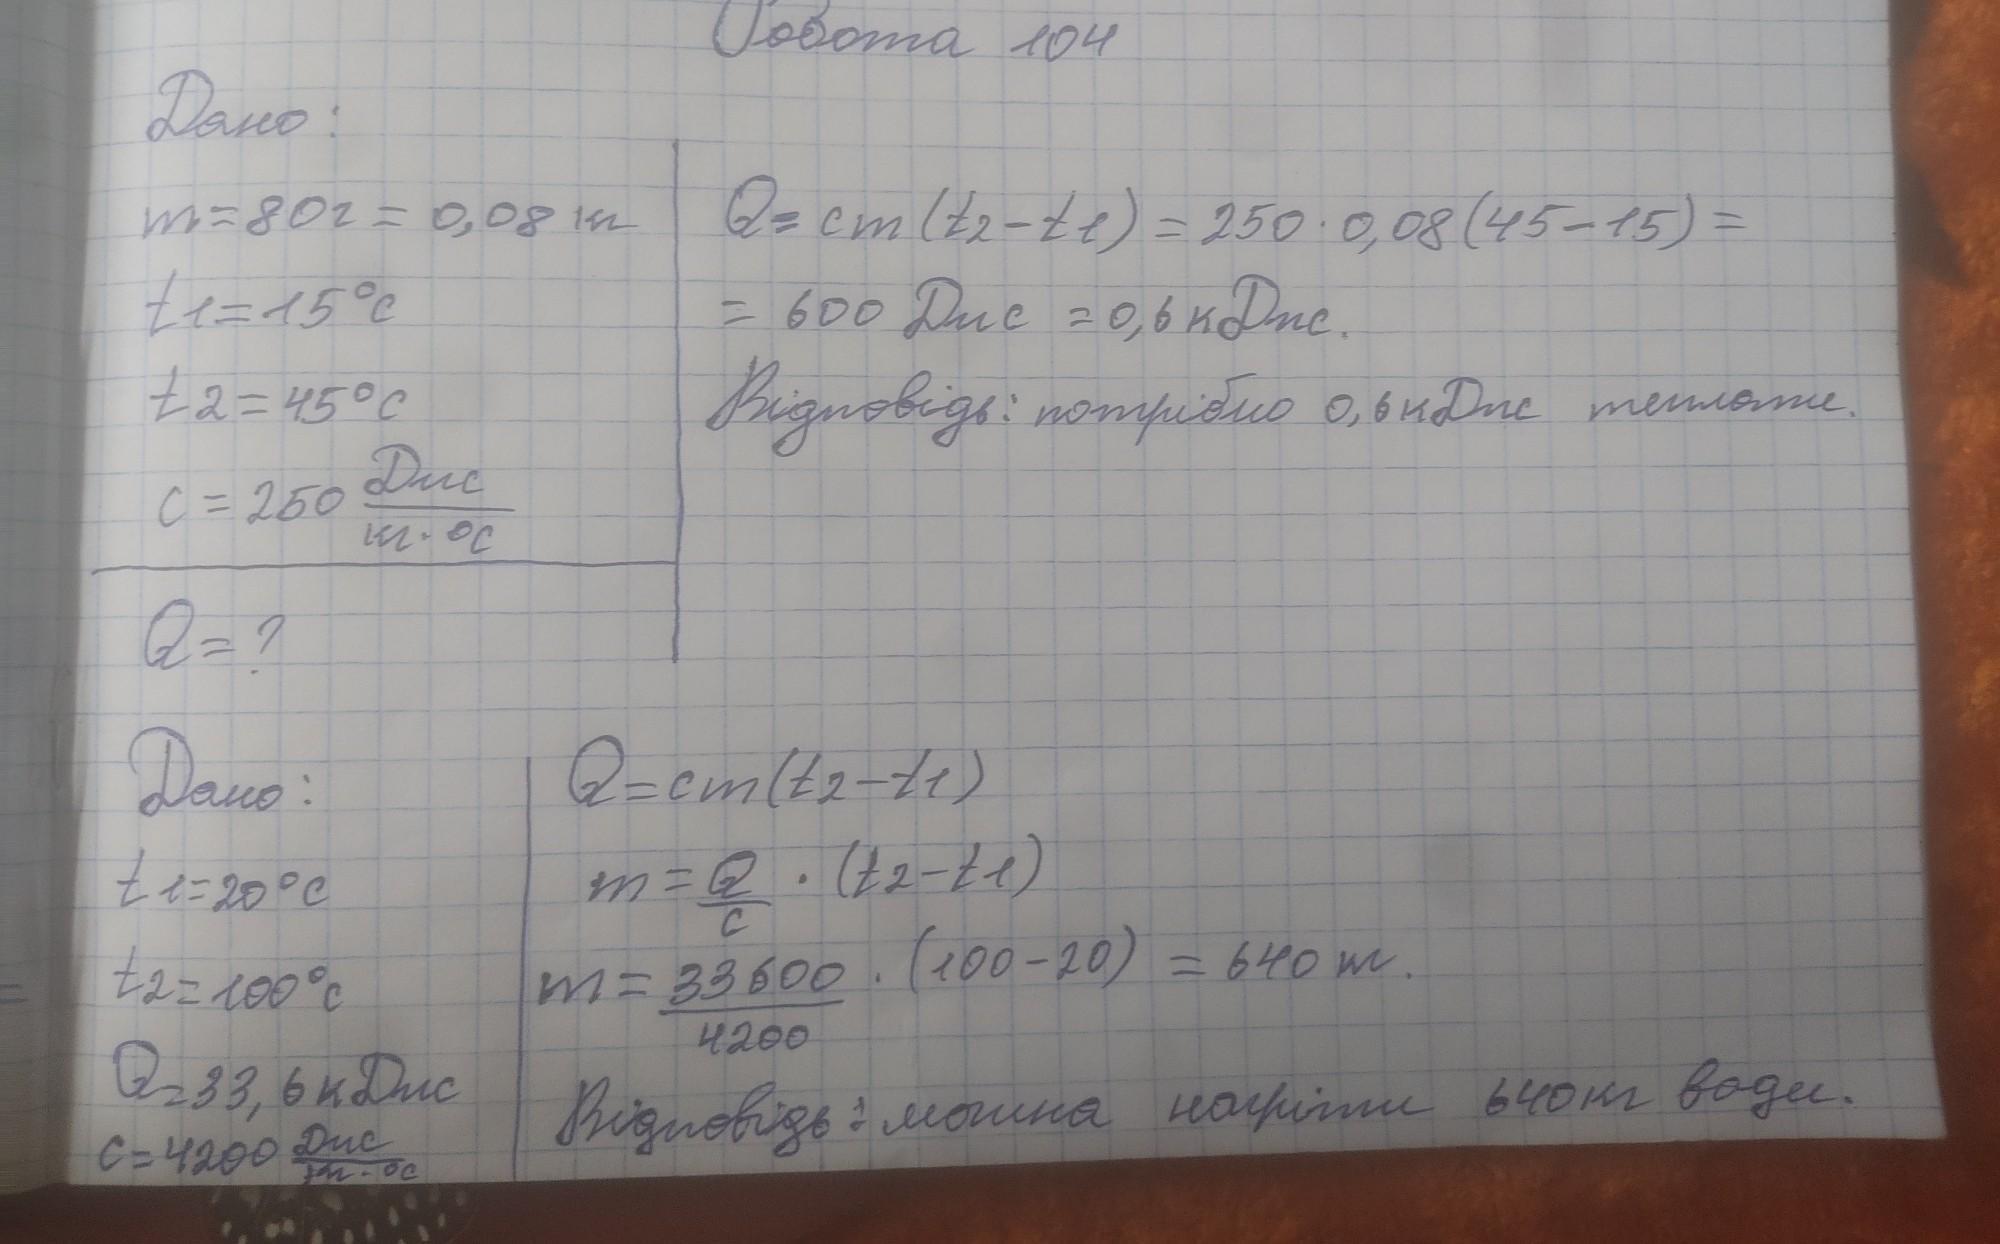 Робота 104
Дано:
m=80г=0,08 кг
t1=15°C
t2=45°C
c=250 Дж/кг·°C
Q=?
Q=cm(t2-t1)=250·0,08(45-15)=
=600 Дж =0,6 кДж.
Відповідь: потрібно 0,6 кДж теплоти.
Дано:
t1=20°C
t2=100°C
Q=33,6 кДж
c=4200 Дж/кг·°C
Q=cm(t2-t1)
m=Q/c·(t2-t1)
m=33600/4200·(100-20)=640 кг.
Відповідь: можна нагріти 640 кг води.